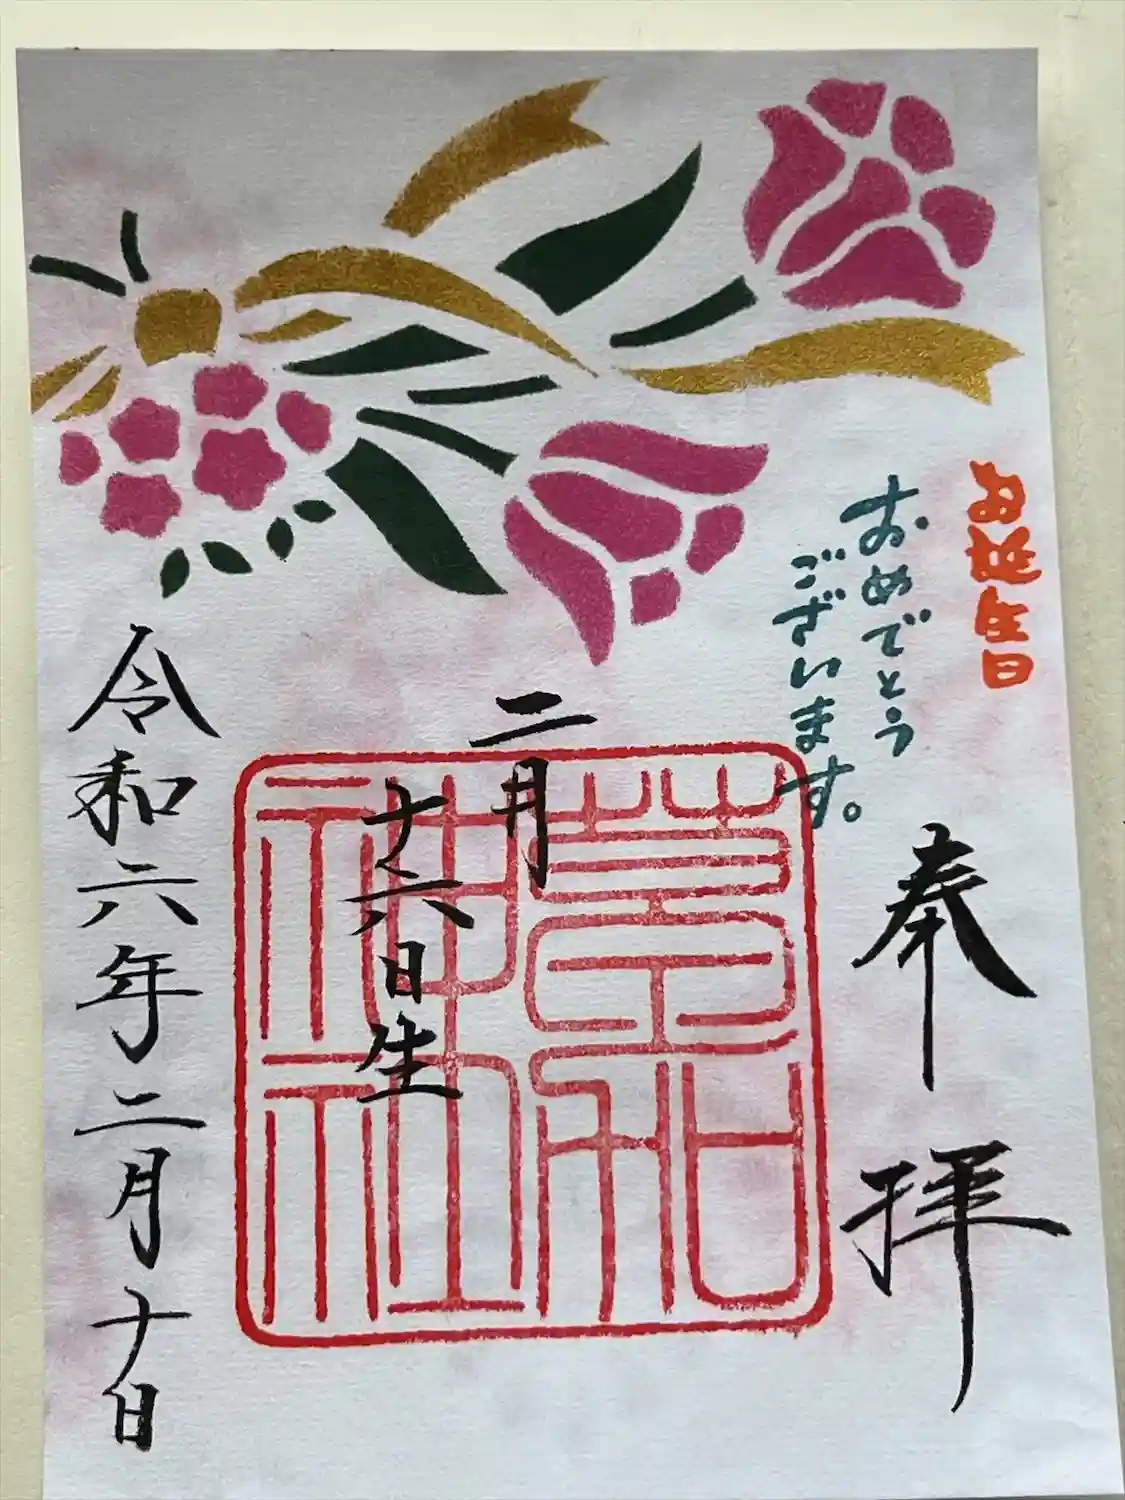 お誕生日
おめでとう
ございます。
奉拝
二月
十六日生
神社
令和六年二月十日